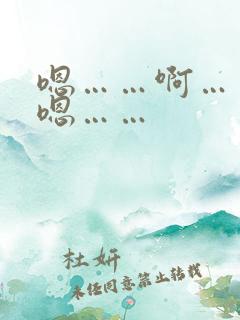 嗯……啊…
嗯……
杜妍
未经同意禁止转载